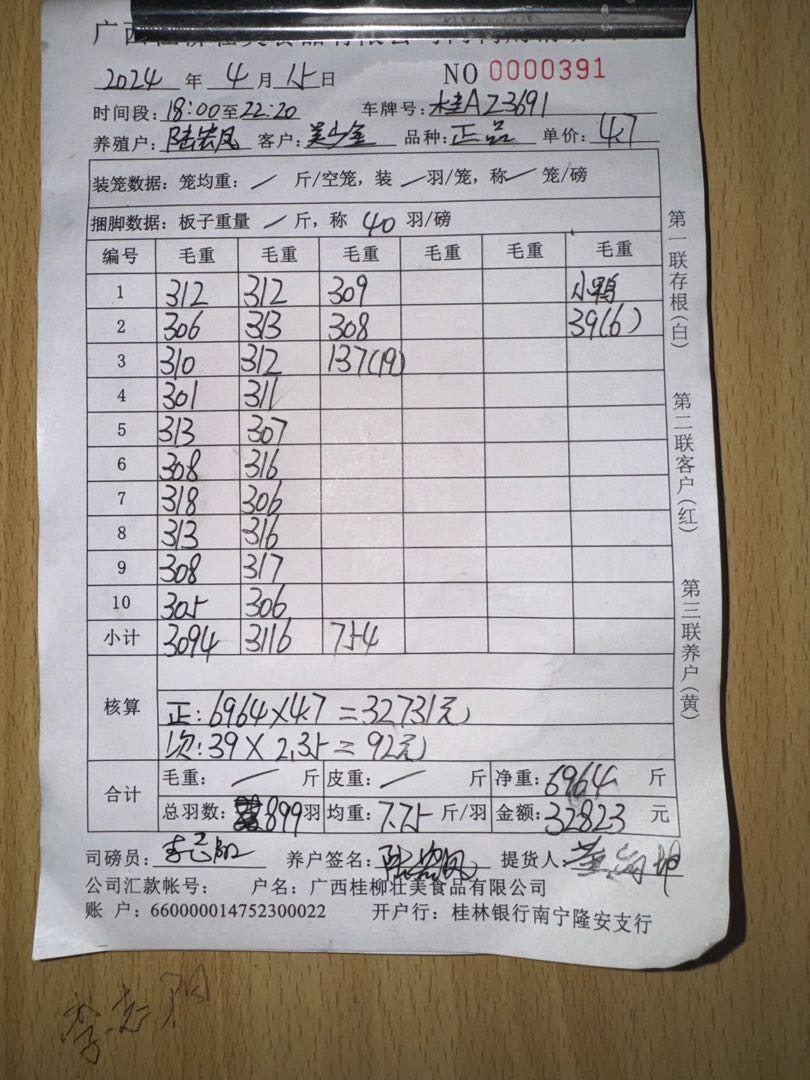 2024 年 4 月 15 日 NO 0000391
时间段: 18:00至22:20 车牌号: 桂AZ3691
养殖户: 陆宏凤 客户: 美少金 品种: 正品 单价: 4.7
装笼数据: 笼均重: / 斤/空笼, 装 / 羽/笼, 称 / 笼/磅
捆脚数据: 板子重量 / 斤, 称 40 羽/磅
编号 毛重 毛重 毛重 毛重 毛重 毛重
1 312 312 309 小鸭
2 306 313 308 39(6)
3 310 312 137(19)
4 301 311
5 313 307
6 308 316
7 318 306
8 313 316
9 308 317
10 305 306
小计 3094 3116 754
核算
正: 6964×4.7=32731元
次: 39×2.35=92元
合计
毛重: / 斤 皮重: / 斤 净重: 6964 斤
总羽数: 899羽 均重: 7.75 斤/羽 金额: 32823 元
司磅员: 养户签名: 提货人:
公司汇款帐号: 户名: 广西桂柳壮美食品有限公司
账 户: 660000014752300022 开户行: 桂林银行南宁隆安支行
第一联存根(白)
第二联客户(红)
第三联养户(黄)